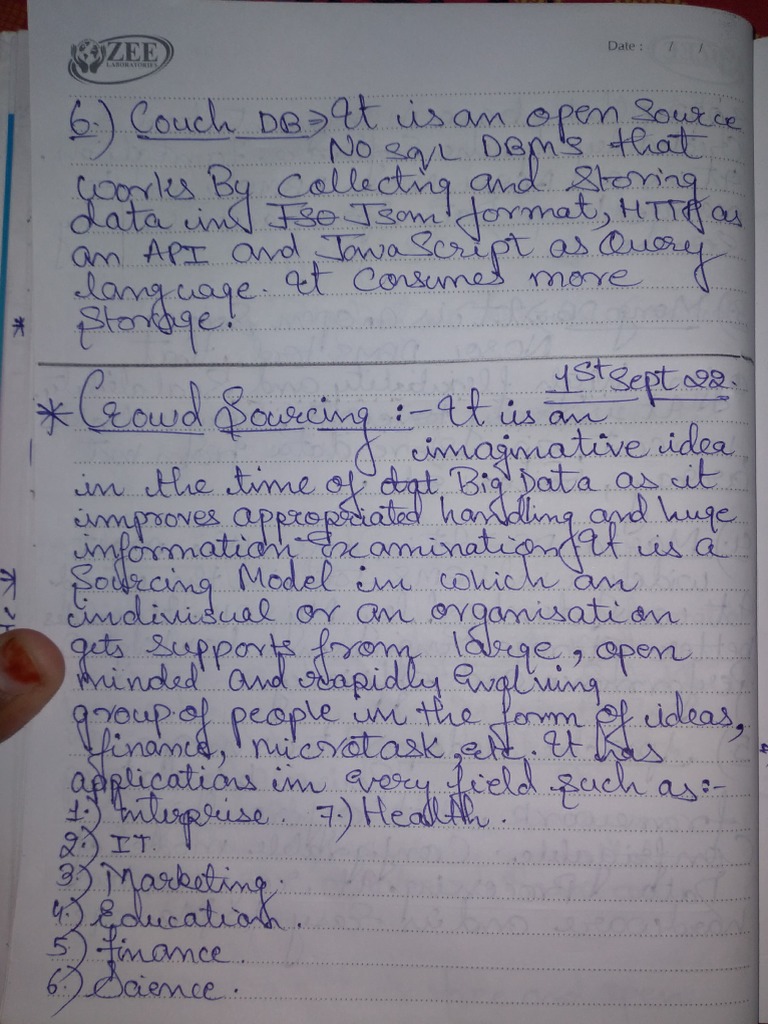 ZEE
LABORATORIES
Date : / /
6.) Couch DB => It is an open source
No sql DBMS that
works By Collecting and Storing
data in Json format, HTTP as
an API and JavaScript as Query
language. It Consumes more
Storage.
1st Sept 22.
* Crowd Sourcing :- It is an
imaginative idea
in the time of Big Data as it
improves appropriated handling and huge
information Examination. It is a
Sourcing Model in which an
indivisual or an organisation
gets supports from large, open
minded and rapidly Evolving
group of people in the form of ideas,
finance, microtask, etc. It has
applications in every field such as:-
1.) Enterprise. 7.) Health.
2.) IT
3.) Marketing.
4.) Education.
5.) finance.
6.) Science.